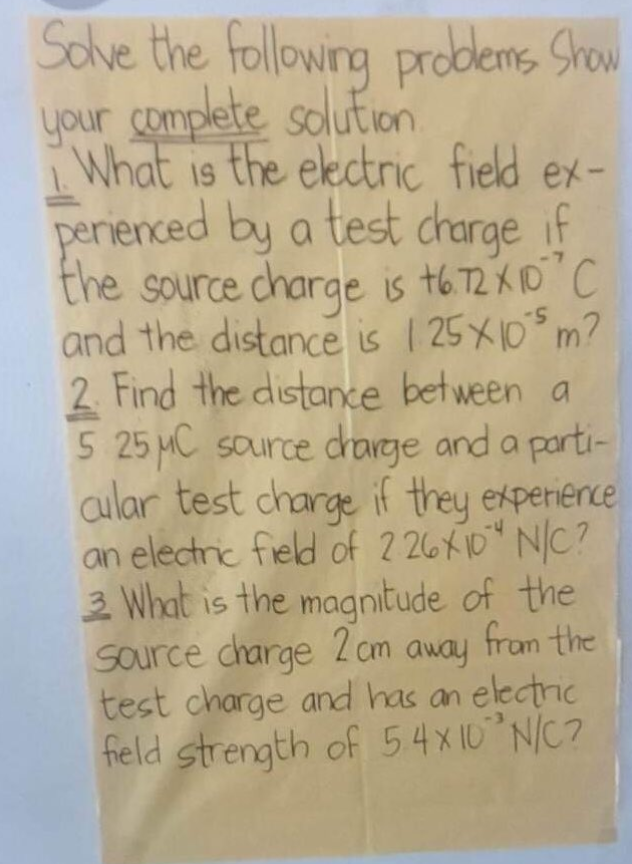 Solve the following problems. Show
your complete solution.
1. What is the electric field ex-
perienced by a test charge if
the source charge is +6.72 X 10⁻⁷ C
and the distance is 1.25 X 10⁻⁵ m?
2. Find the distance between a
5.25 μC source charge and a parti-
cular test charge if they experience
an electric field of 2.26 X 10⁻⁴ N/C?
3. What is the magnitude of the
source charge 2 cm away from the
test charge and has an electric
field strength of 5.4 x 10⁻³ N/C?